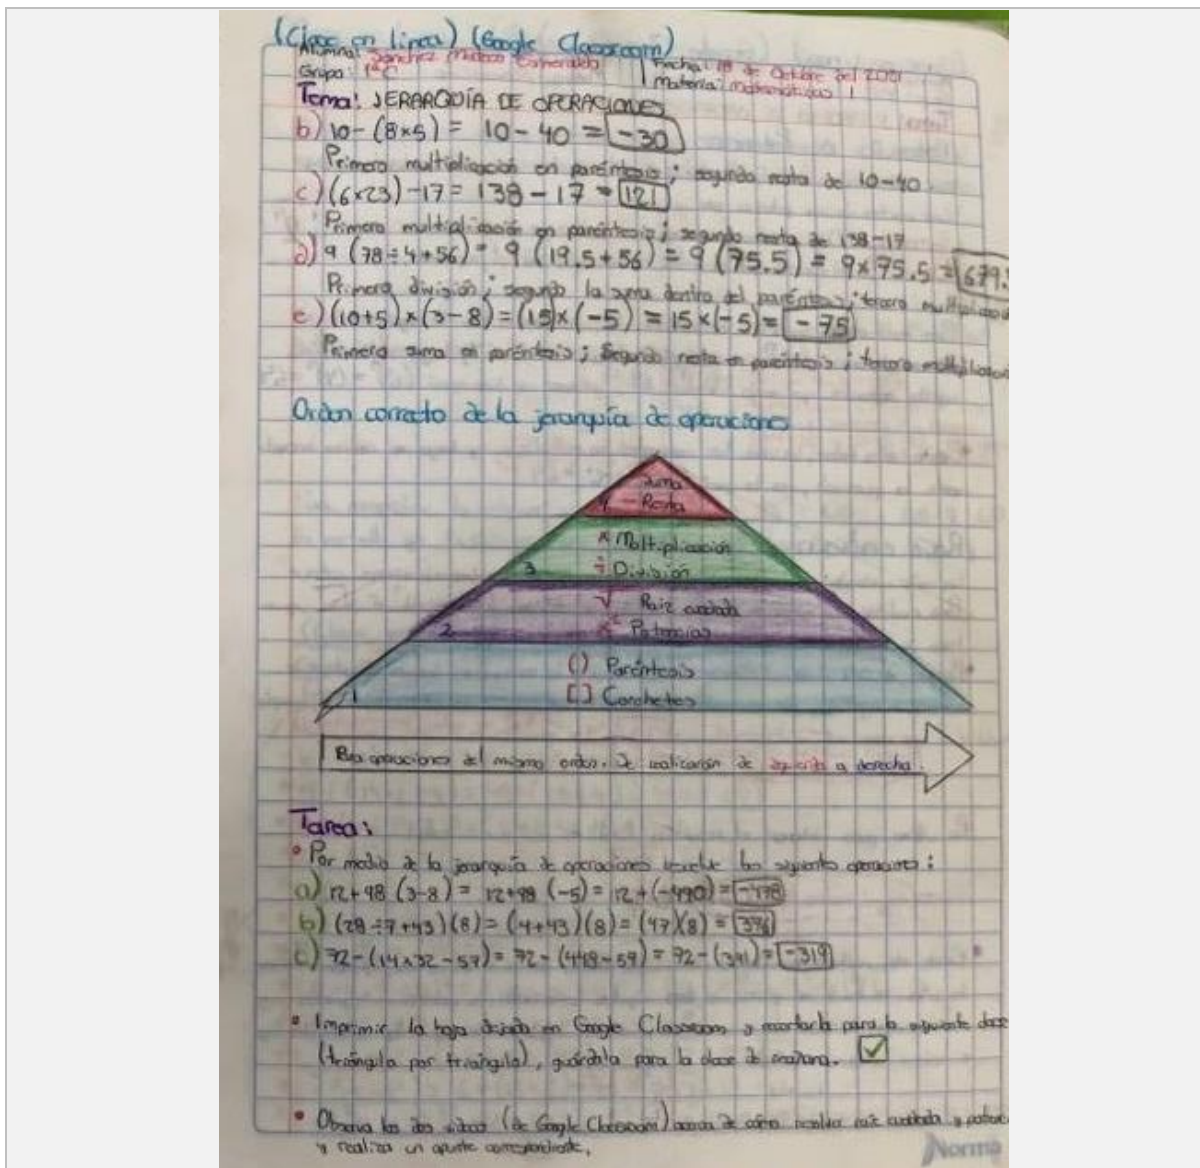 (Clase en línea) (Google Classroom)
Alumna: Sánchez Esmeralda
Fecha: 18 de Octubre del
Grupo: 1°C
Materia: Matemáticas 1
Tema: JERARQUÍA DE OPERACIONES
b) 10-(8×5) = 10-40 = -30
Primero multiplicación en paréntesis; segundo resta de 10-40
c) (6×23)-17 = 138-17 = 121
Primero multiplicación en paréntesis; segundo resta de 138-17
d) 9 (78÷4+56) = 9 (19.5+56) = 9 (75.5) = 9×75.5 = 679.
Primero división; segundo la suma dentro del paréntesis; tercero
e) (10+5)×(3-8) = (15)×(-5) = 15×(-5) = -75
Primero suma en paréntesis; Segundo resta en paréntesis; tercero
Orden correcto de la jerarquía de operaciones
Suma
4 - Resta
× Multiplicación
3 ÷ División
√ Raíz cuadrada
2 Potencias
() Paréntesis
1 [] Corchetes
Para operaciones del mismo orden. Se realizarán de izquierda a derecha.
Tarea:
• Por medio de la jerarquía de operaciones resuelve las siguientes operaciones:
a) 12+98 (3-8) = 12+98 (-5) = 12+(-490) = -478
b) (28÷7+43)(8) = (4+43)(8) = (47)(8) = 376
c) 72-(14×32-57) = 72-(448-57) = 72-(391) = -319
• Imprimir la hoja dejada en Google Classroom y recortarla para la siguiente clase
(triángulo por triángulo), guárdala para la clase de mañana. ✓
• Observa los dos videos (de Google Classroom) acerca de cómo resolver raíz cuadrada y
y realiza un apunte correspondiente.
Norma